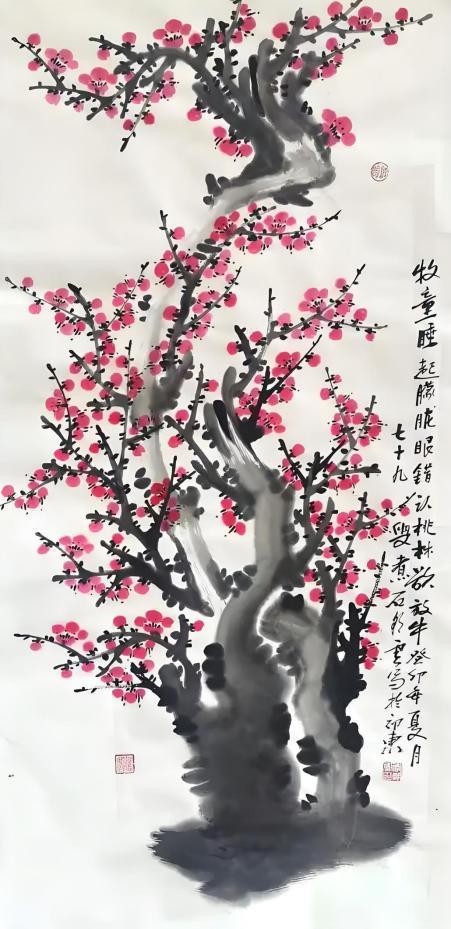 牧童睡起朦胧眼错认桃林欲放牛癸卯年夏月
七十九叟煮石彩云写於